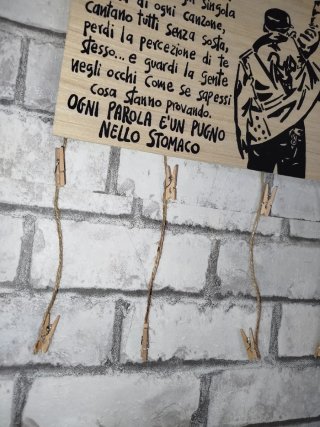 Singola
di ogni canzone,
cantano tutti senza sosta,
perdi la percezione di te
stesso... e guardi la gente
negli occhi come se sapessi
cosa stanno provando.
OGNI PAROLA E' UN PUGNO
NELLO STOMACO